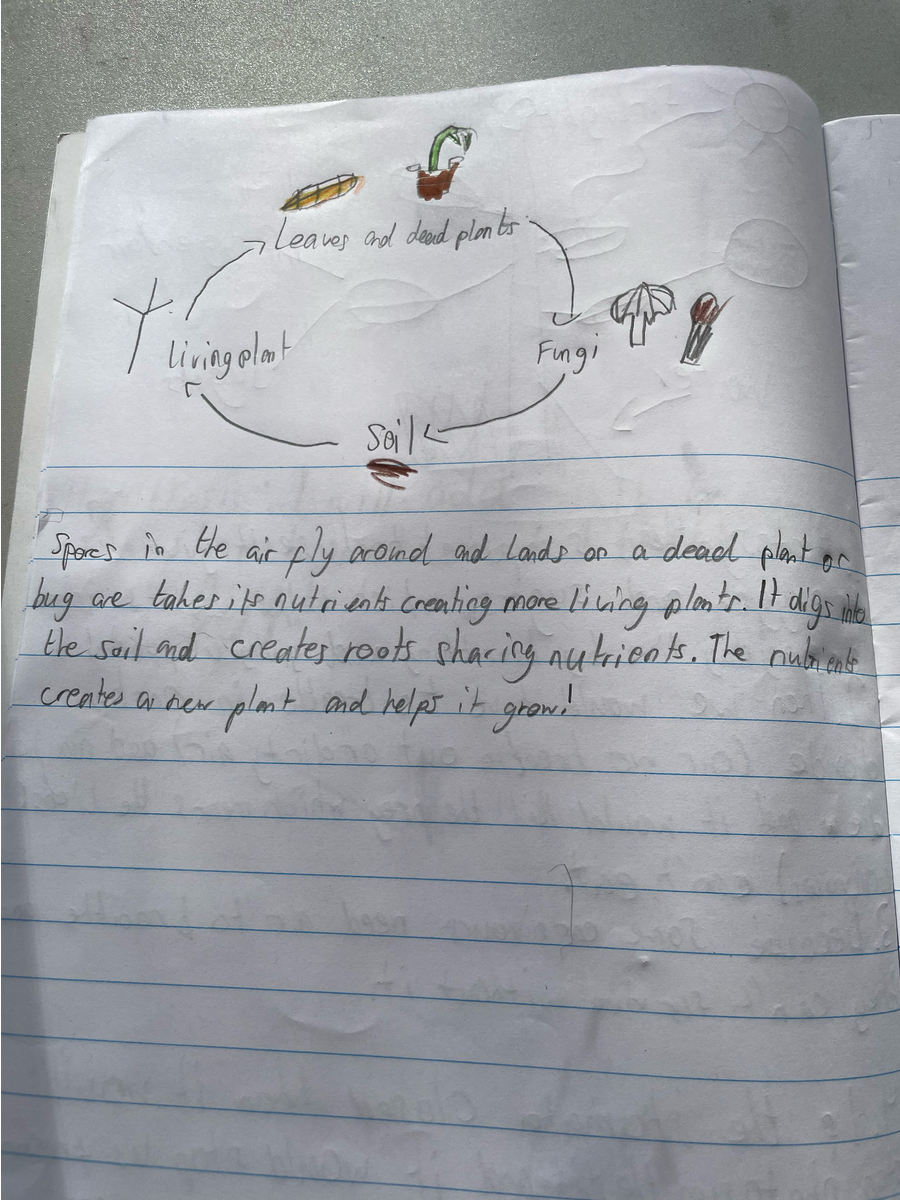 Leaves and dead plants
Living plant
Fungi
Soil
Spores in the air fly around and lands on a dead plant or
bug are takes its nutrients creating more living plants. It digs into
the soil and creates roots sharing nutrients. The nutrients
creates a new plant and helps it grow!